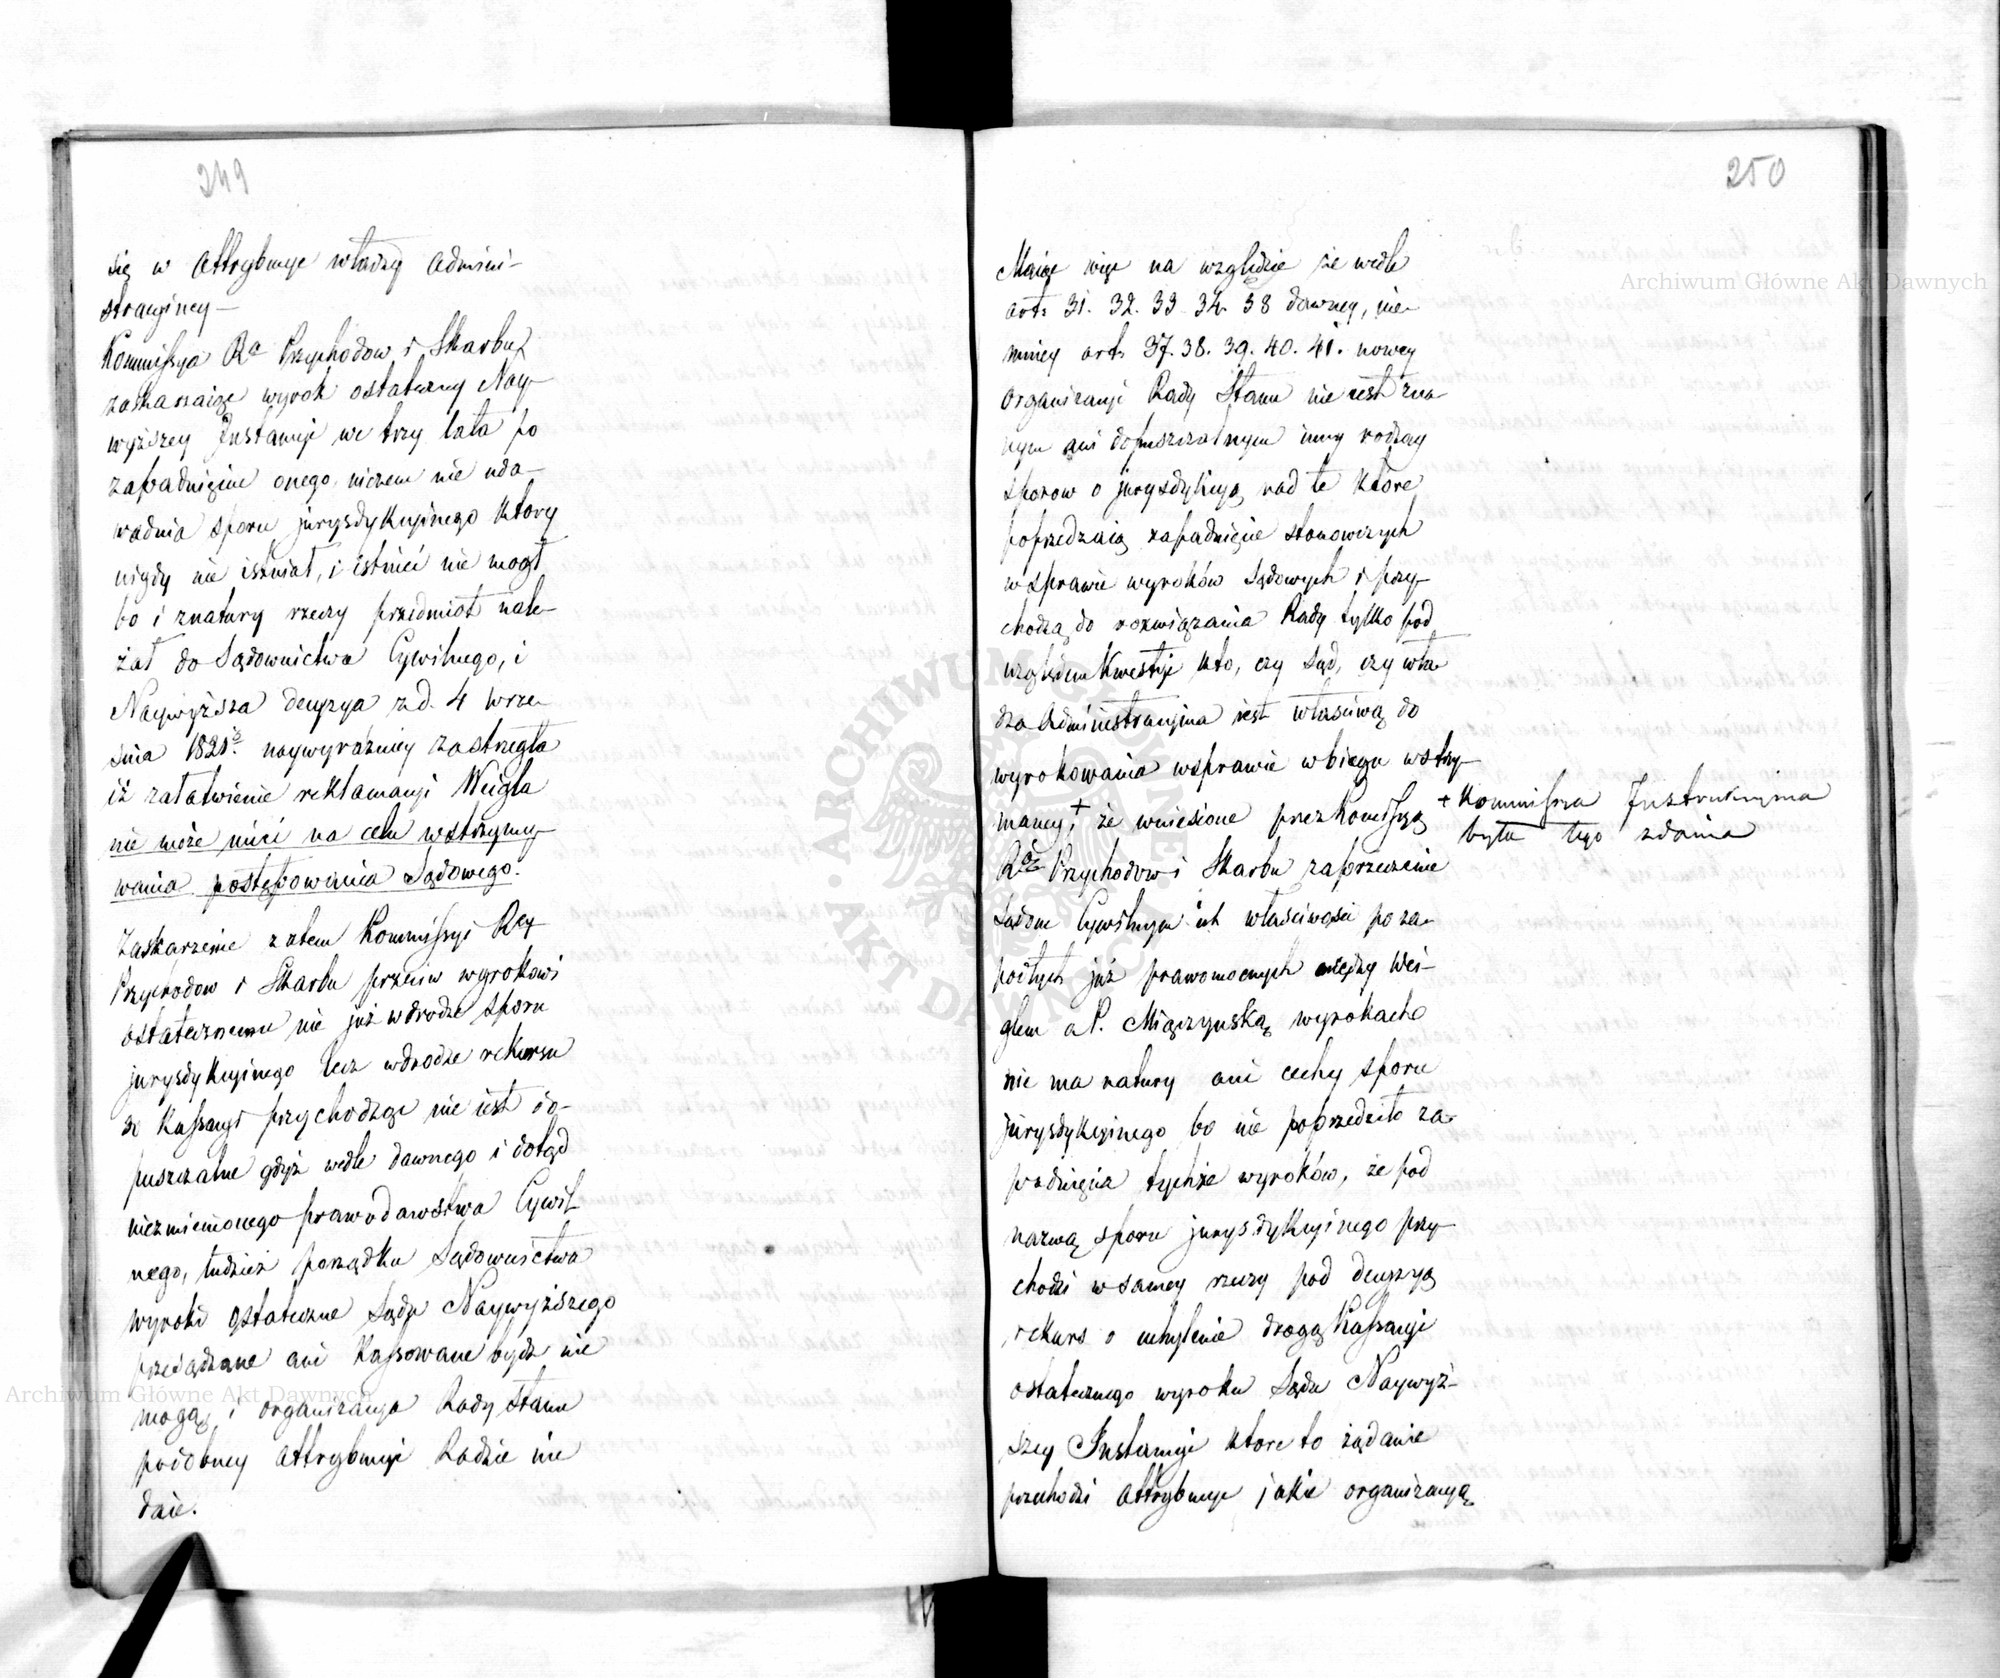 249
się w Attrybucye władzy Admini-
stracyiney —
Kommissya Ra Przychodow i Skarbu
zaskarzaiąc wyrok ostateczny Nay-
wyższey Instancyi we trzy lata po
zapadnięciu onego niczem nie uda-
wadnia sporu jurysdykcyinego ktory
nigdy nie istniał, i istnieć nie mogł
bo i z natury rzeczy przedmiot nale-
żał do Sądownictwa Cywilnego, i
Naywyższa decyzya z d. 4 wrze-
śnia 1821 naywyraźniey zastrzegła
iż załatwienie reklamacyi Weigla
nie może mieć na celu wstrzymy-
wania postępowania Sądowego.
Zaskarzenie zatem Kommissyi Rey
Przychodow i Skarbu przeciw wyrokowi
ostatecznemu nie już w drodze sporu
jurysdykcyinego lecz w drodze rekursu
do Kassacyi przychodzące nie iest do-
puszczalne gdyż wedle dawnego i dotąd
niezmienionego prawodawstwa Cywil-
nego, tudzież porządku Sądownictwa
wyroki ostateczne Sądu Naywyższego
przesądzane ani Kassowane bydź nie
mogą i organizacya Rady Stanu
podobney attrybucyi Radzie nie
daie.
250
Maiąc więc na względzie że wedle
art. 31. 32. 33. 34. 38 dawney, nie-
mniey art. 37. 38. 39. 40. 41. nowey
organizacyi Rady Stanu nie iest zna-
nym ani dopuszczalnym inny rodzay
sporow o jurysdykcyą nad te które
poprzedzaią zapadnięcie stanowczych
w sprawie wyroków Sądowych i przy-
chodzą do rozwiązania Rady tylko pod
względem kwestyi kto, czy Sąd, czy wła-
dza Administracyina iest właściwą do
wyrokowania w sprawie w biegu wstrzy-
maney, + że wniesione przez Komissyą
+ Kommissya Instrukcyina
była tego zdania
Rą Przychodow i Skarbu zaprzeczenie
Sądom Cywilnym ich właściwości po za-
padłych już prawomocnych między Wei-
glem a P. Miączyńską wyrokach
nie ma natury ani cechy sporu
jurysdykcyinego bo nie poprzedziło za-
padnięcia tychże wyroków, że pod
nazwą sporu jurysdykcyinego przy-
chodzi w samey rzeczy pod decyzyą
rekurs o uchylenie drogą Kassacyi
ostatecznego wyroku Sądu Naywyż-
szey Instancyi ktore to żądanie
przechodzi attrybucye jakie organizacyą
Archiwum Główne Akt Dawnych
Archiwum Główne Akt Dawnych
ARCHIWUM GŁÓWNE AKT DAWNYCH